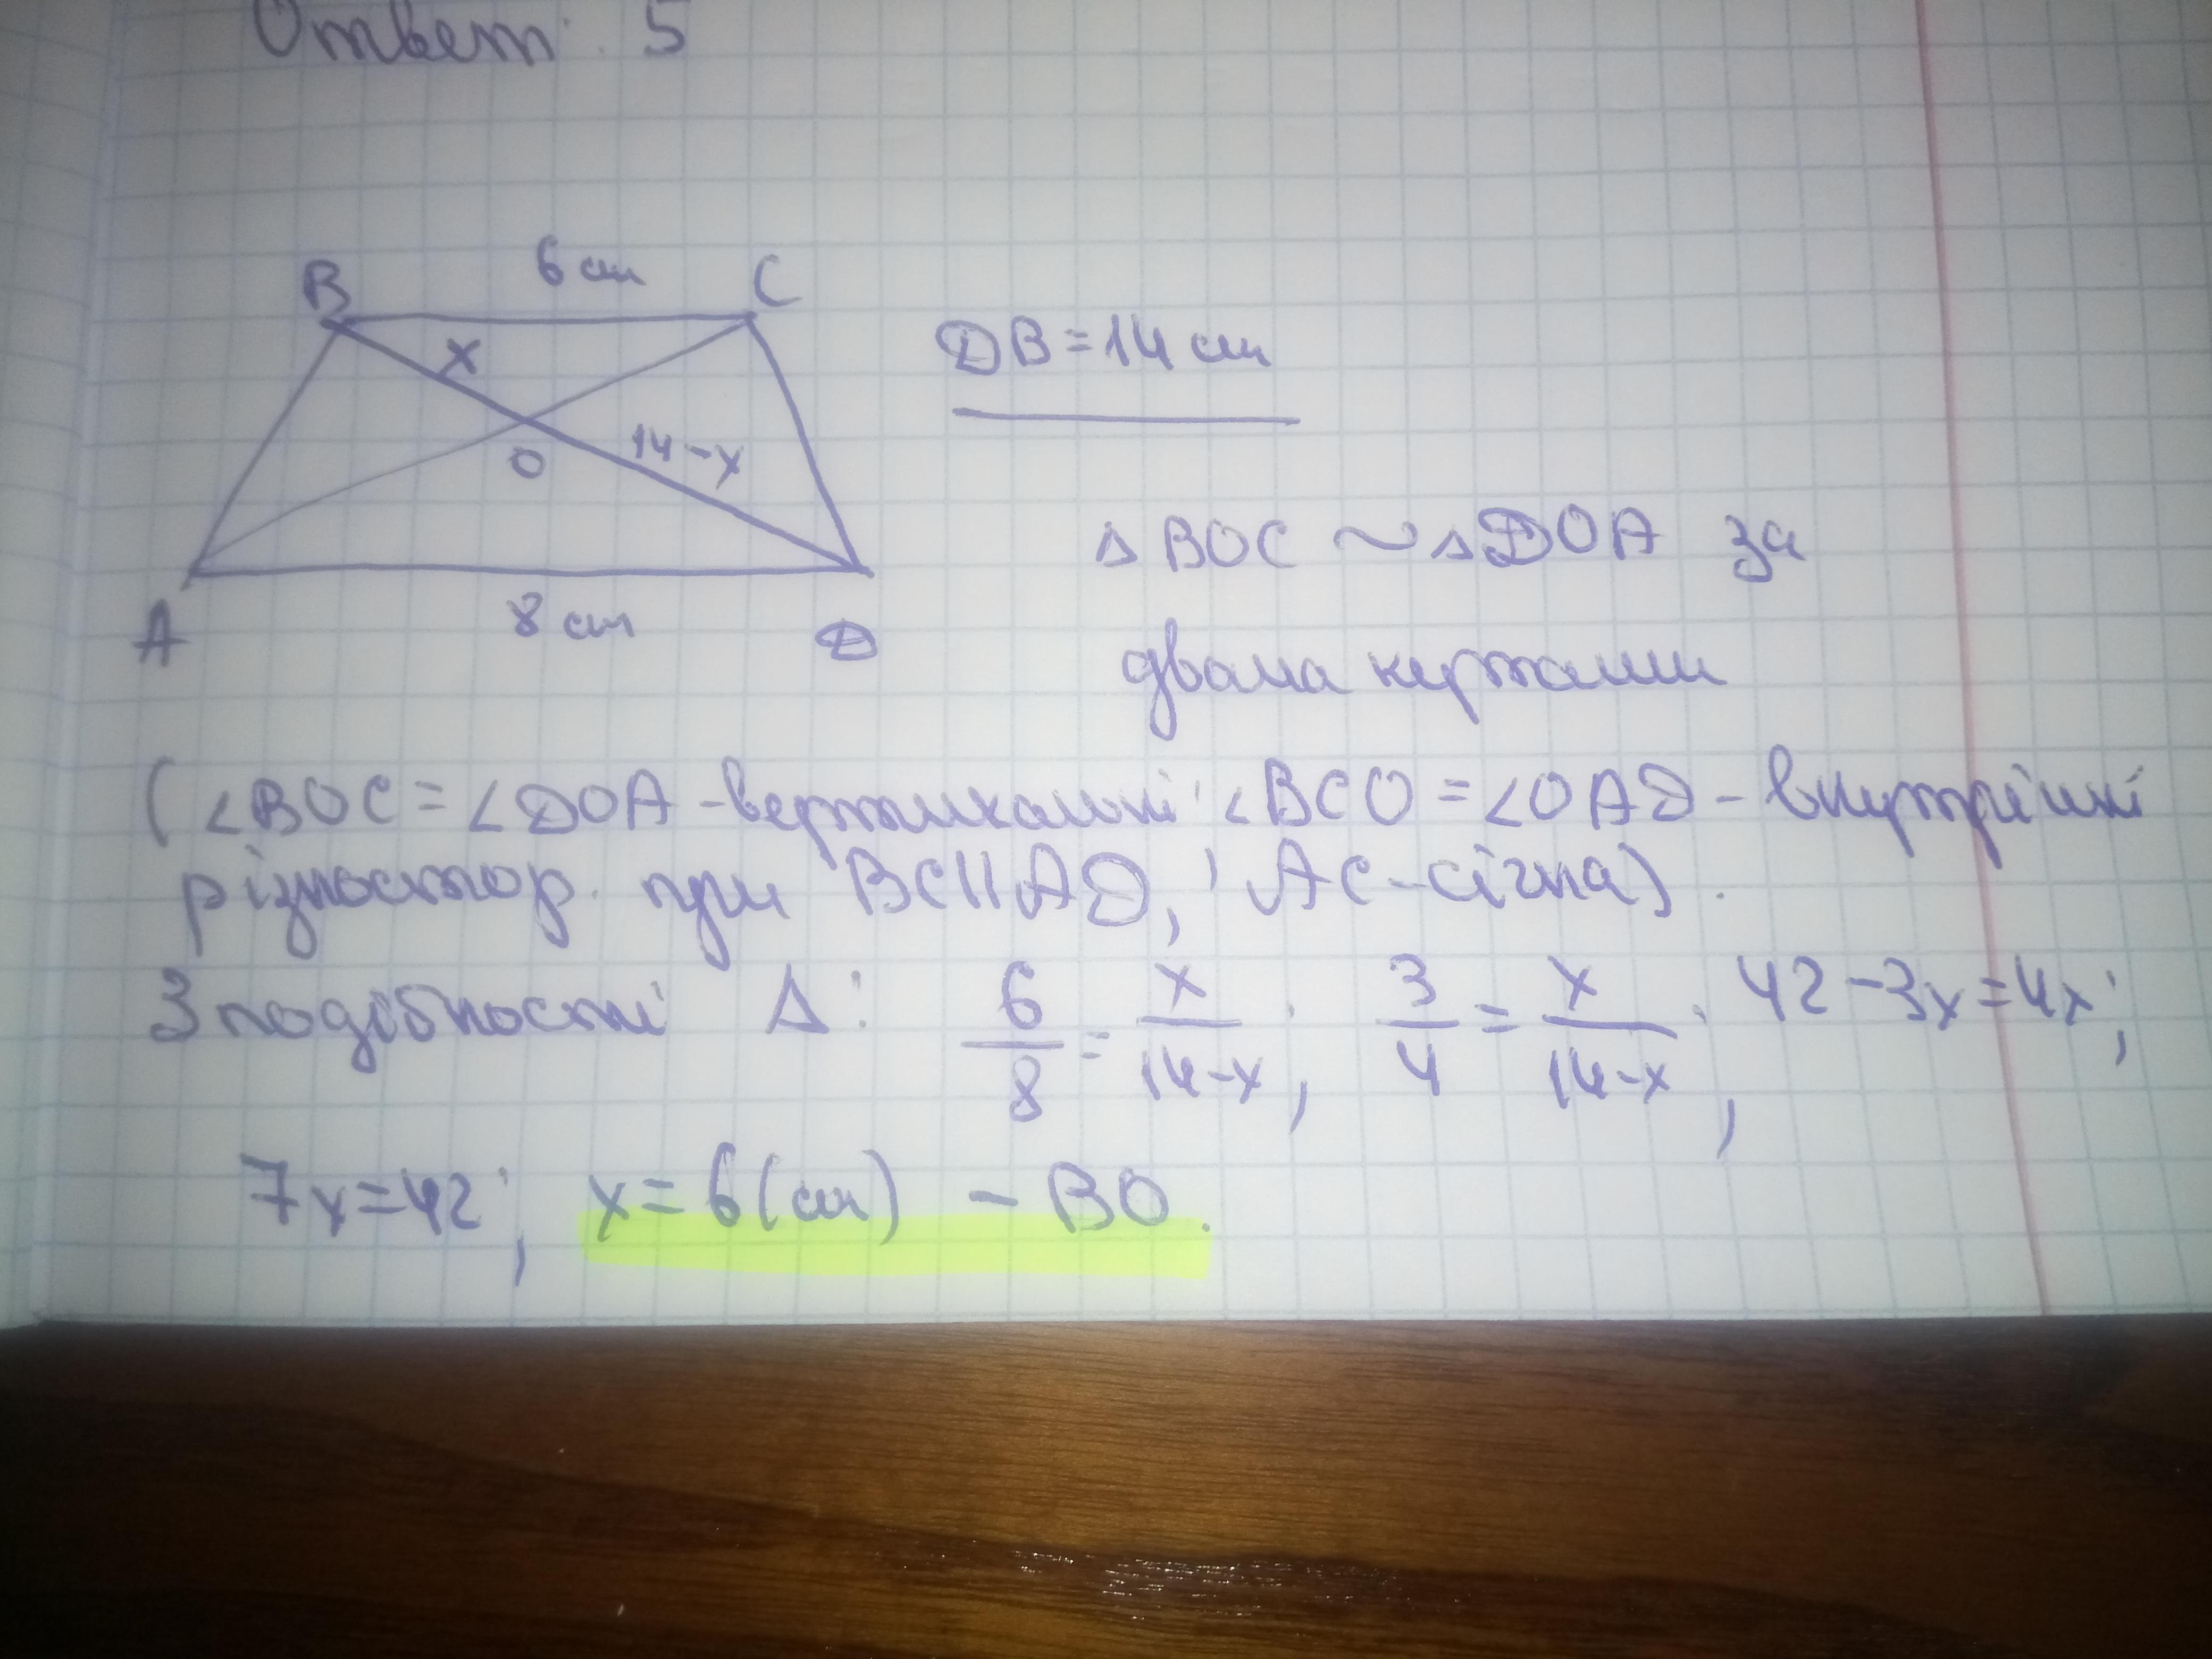 Ответ: 5
6 см
B
C
x
DB = 14 см
O
14-x
A
8 см
D
Δ BOC ~ Δ DOA за
двома кутами
(∠BOC = ∠DOA - вертикальні; ∠BCO = ∠OAD - внутрішні
різностор. при BC||AD, і AC - січна).
З подібності Δ: 6/8 = x/14-x; 3/4 = x/14-x; 42-3x=4x;
7x=42; x=6(см) - BO.